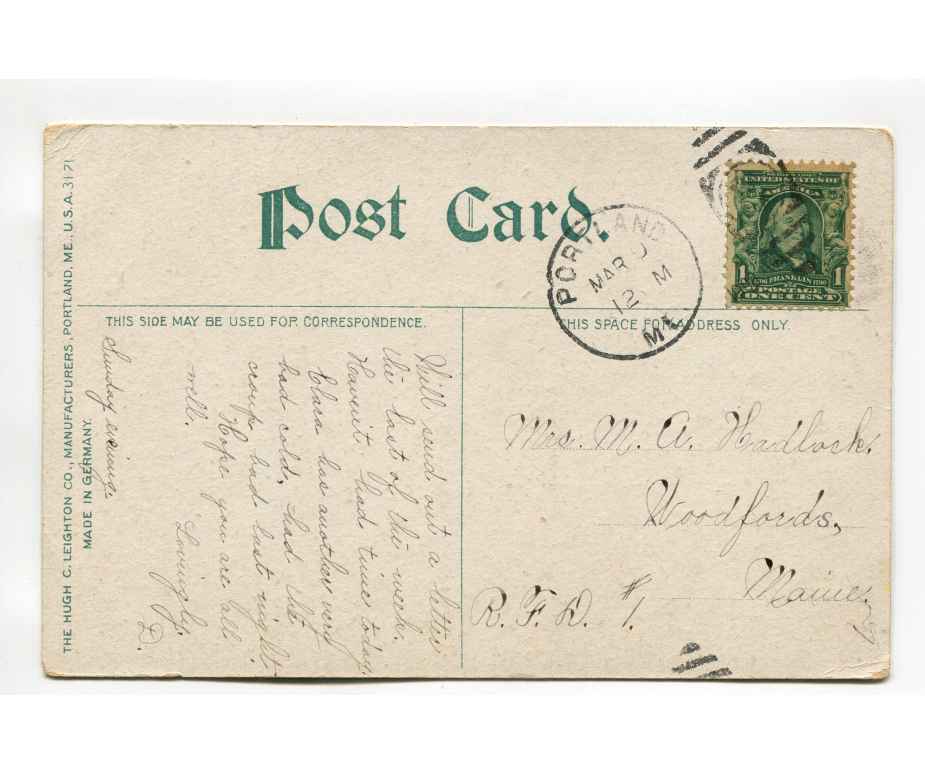 Post Card.
THIS SIDE MAY BE USED FOR CORRESPONDENCE.
THIS SPACE FOR ADDRESS ONLY.
THE HUGH C. LEIGHTON CO., MANUFACTURERS, PORTLAND, ME., U.S.A. 3171
MADE IN GERMANY.
PORTLAND
MAR
12 M
ME.
UNITED STATES OF
AMERICA
1 FRANKLIN 1
POSTAGE
ONE CENT
Sunday evening.
Will send out a letter
the last of the week.
Haven't had time today.
Clara has another very
bad cold, had the
croup bad last night.
Hope you are all
well.
Lovingly,
D.
Mrs. M. A. Hadlock.
Woodfords,
Maine.
R.F.D. #1.